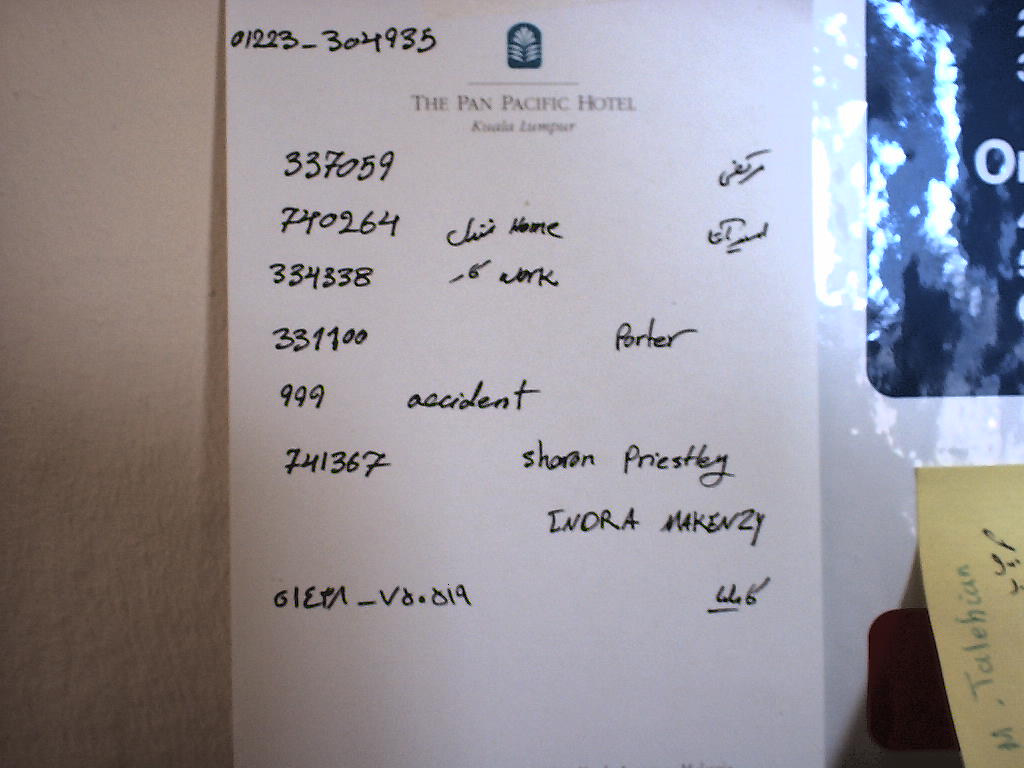 01223-304935
THE PAN PACIFIC HOTEL
Kuala Lumpur
337059 مرتضی
740264 منزل Home
334338 کار work
331100 Porter
999 accident
741367 Sharon Priestley
INDRA MAKENZY
۰۱۴۳۸-۷۵۰۵۱۹
M. Talebian